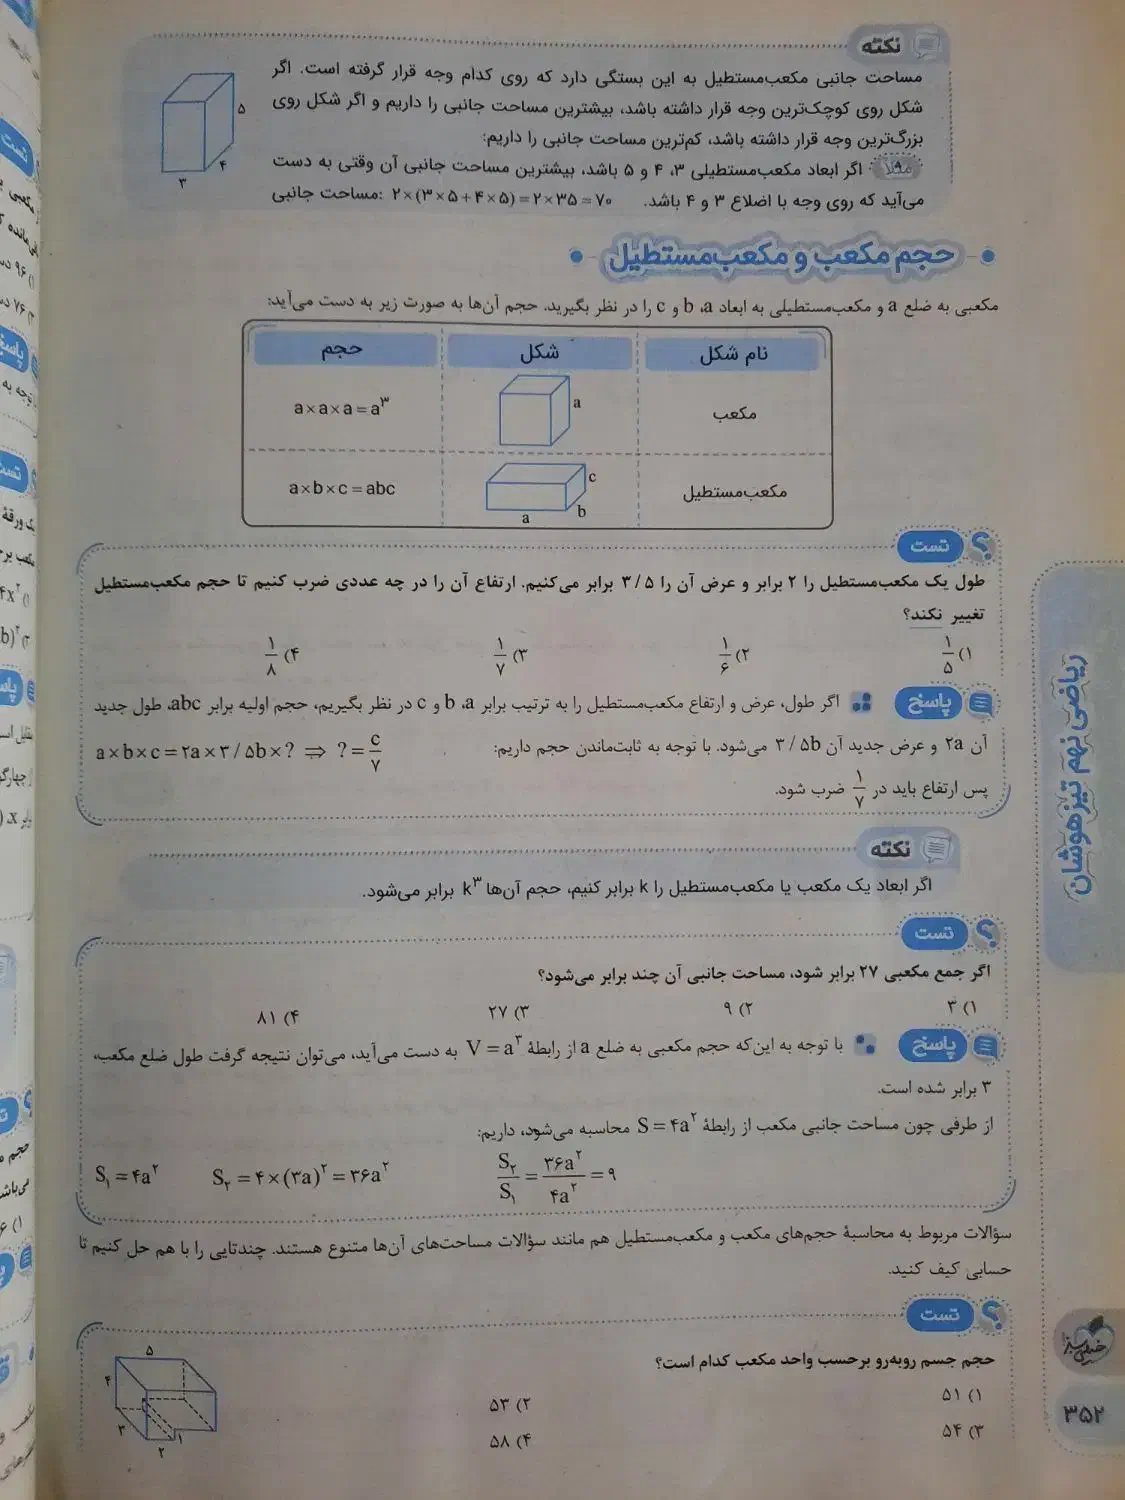 نکته
مساحت جانبی مکعب‌مستطیل به این بستگی دارد که روی کدام وجه قرار گرفته است. اگر
شکل روی کوچک‌ترین وجه قرار داشته باشد، بیشترین مساحت جانبی را داریم و اگر شکل روی
بزرگ‌ترین وجه قرار داشته باشد، کم‌ترین مساحت جانبی را داریم:
مثلاً: اگر ابعاد مکعب‌مستطیلی ۳، ۴ و ۵ باشد، بیشترین مساحت جانبی آن وقتی به دست
می‌آید که روی وجه با اضلاع ۳ و ۴ باشد. ۲×(۳×۵+۴×۵)=۲×۳۵=۷۰ :مساحت جانبی
۵
۴
۳
حجم مکعب و مکعب‌مستطیل
مکعبی به ضلع a و مکعب‌مستطیلی به ابعاد a، b و c را در نظر بگیرید. حجم آن‌ها به صورت زیر به دست می‌آید:
نام شکل شکل حجم
مکعب a a×a×a=a^۳
مکعب‌مستطیل a b c a×b×c=abc
تست
طول یک مکعب‌مستطیل را ۲ برابر و عرض آن را ۳/۵ برابر می‌کنیم. ارتفاع آن را در چه عددی ضرب کنیم تا حجم مکعب‌مستطیل
تغییر نکند؟
۱) ۱/۵ ۲) ۱/۶ ۳) ۱/۷ ۴) ۱/۸
پاسخ اگر طول، عرض و ارتفاع مکعب‌مستطیل را به ترتیب برابر a، b و c در نظر بگیریم، حجم اولیه برابر abc، طول جدید
آن ۲a و عرض جدید آن ۳/۵b می‌شود. با توجه به ثابت‌ماندن حجم داریم: a×b×c=۲a×۳/۵b×? ⇒ ?=c/۷
پس ارتفاع باید در ۱/۷ ضرب شود.
نکته
اگر ابعاد یک مکعب یا مکعب‌مستطیل را k برابر کنیم، حجم آن‌ها k^۳ برابر می‌شود.
تست
اگر جمع مکعبی ۲۷ برابر شود، مساحت جانبی آن چند برابر می‌شود؟
۱) ۳ ۲) ۹ ۳) ۲۷ ۴) ۸۱
پاسخ با توجه به این‌که حجم مکعبی به ضلع a از رابطهٔ V=a^۳ به دست می‌آید، می‌توان نتیجه گرفت طول ضلع مکعب،
۳ برابر شده است.
از طرفی چون مساحت جانبی مکعب از رابطهٔ S=۴a^۲ محاسبه می‌شود، داریم:
S₁=۴a^۲ S₂=۴×(۳a)^۲=۳۶a^۲ S₂/S₁=۳۶a^۲/۴a^۲=۹
سؤالات مربوط به محاسبهٔ حجم‌های مکعب و مکعب‌مستطیل هم مانند سؤالات مساحت‌های آن‌ها متنوع هستند. چندتایی را با هم حل کنیم تا
حسابی کیف کنید.
تست
حجم جسم روبه‌رو برحسب واحد مکعب کدام است؟
۱) ۵۱ ۲) ۵۳
۳) ۵۴ ۴) ۵۸
۵
۴
۳
۲
۱
ریاضی نهم تیزهوشان
خیلی سبز
۳۵۲
تست
۱) ۹۶
۷۶
پاسخ
توجه به
تست
یک ورقهٔ